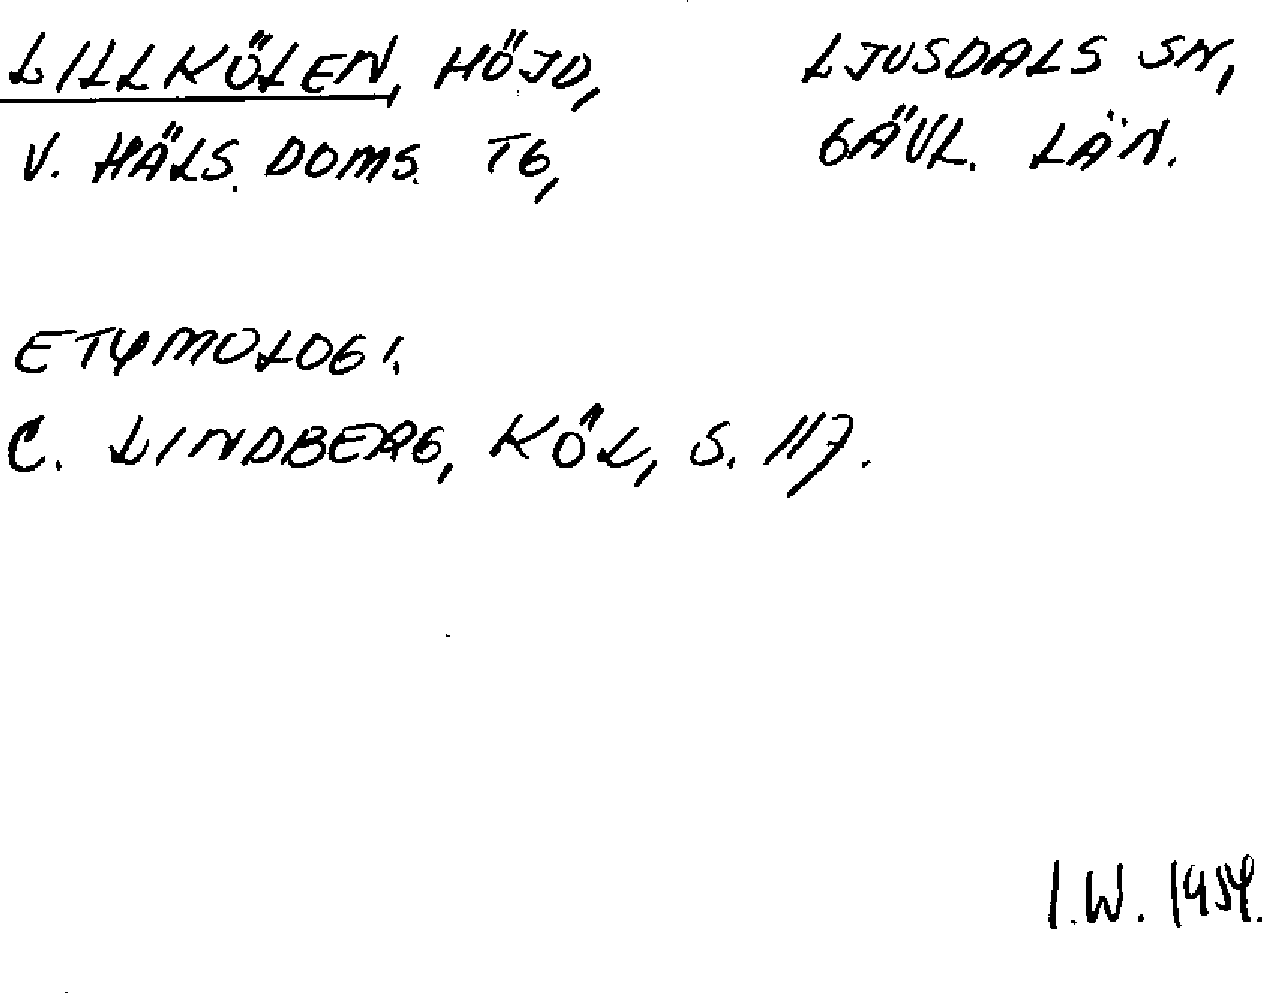 LILLKÖLEN, HÖJD, LJUSDALS SN,
V. HÄLS. DOMS. TG, GÄVL. LÄN.
ETYMOLOGI.
C. LINDBERG, KÖL, S. 117.
I.W. 1954.